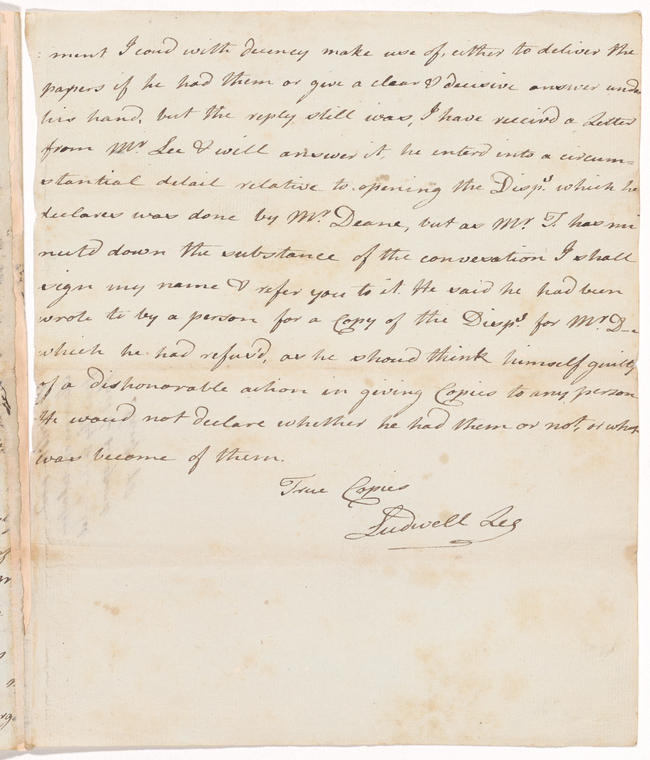 : ment I coud with decency make use of, either to deliver the
papers if he had them or give a clear & decisive answer unde
his hand, but the reply still was, I have receivd a Letter
from Mr. Lee & will answer it, he enterd into a circum=
stantial detail relative to opening the Disps. which he
declares was done by Mr. Deane, but as Mr. T. has mi
nuted down the substance of the convesation I shall
sign my name & refer you to it. He said he had been
wrote to by a person for a Copy of the Disps. for Mr. D—
which he had refus'd, as he shoud think himself guilty
of a dishonorable action in giving Copies to any person
He woud not declare whether he had them or not, or what
was become of them.
True Copies
Ludwell Lee